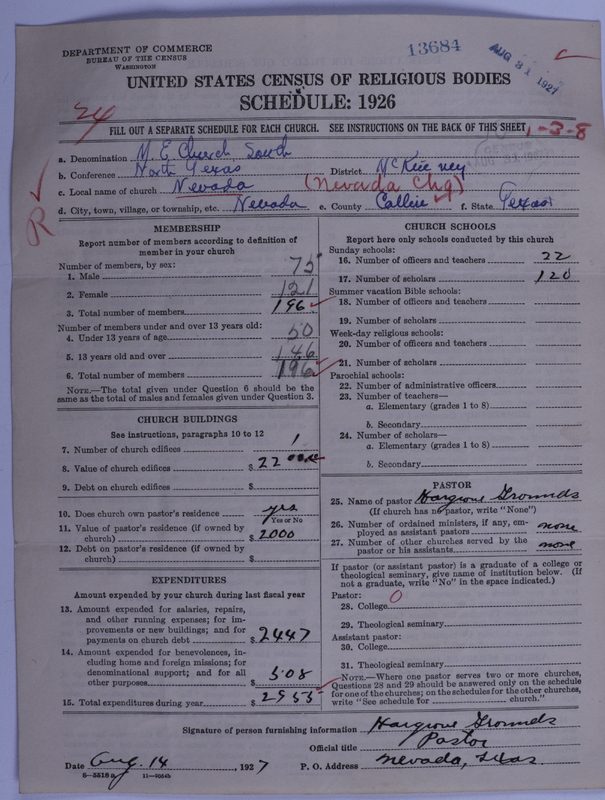 DEPARTMENT OF COMMERCE
BUREAU OF THE CENSUS
WASHINGTON
13684
AUG 31 1927
UNITED STATES CENSUS OF RELIGIOUS BODIES
SCHEDULE: 1926
FILL OUT A SEPARATE SCHEDULE FOR EACH CHURCH. SEE INSTRUCTIONS ON THE BACK OF THIS SHEET
1-3-8
R
a. Denomination M. E. Church South
b. Conference North Texas District McKinney
c. Local name of church Nevada (Nevada Chg)
d. City, town, village, or township, etc. Nevada e. County Collin f. State Texas
MEMBERSHIP
Report number of members according to definition of member in your church
Number of members, by sex:
1. Male 75
2. Female 121
3. Total number of members 196
Number of members under and over 13 years old:
4. Under 13 years of age 50
5. 13 years old and over 146
6. Total number of members 196
NOTE.—The total given under Question 6 should be
same as the total of males and females given under Question 3.
CHURCH BUILDINGS
See instructions, paragraphs 10 to 12
7. Number of church edifices 1
8. Value of church edifices $ 22
9. Debt on church edifices $
10. Does church own pastor's residence yes
Yes or No
11. Value of pastor's residence (if owned by
church) $ 2000
12. Debt on pastor's residence (if owned by
church) $
EXPENDITURES
Amount expended by your church during last fiscal year
13. Amount expended for salaries, repairs,
and other running expenses; for im-
provements or new buildings; and for
payments on church debt $ 2447
14. Amount expended for benevolences, in-
cluding home and foreign missions; for
denominational support; and for all
other purposes $ 508
15. Total expenditures during year $ 2955
CHURCH SCHOOLS
Report here only schools conducted by this church
Sunday schools:
16. Number of officers and teachers 22
17. Number of scholars 120
Summer vacation Bible schools:
18. Number of officers and teachers
19. Number of scholars
Week-day religious schools:
20. Number of officers and teachers
21. Number of scholars
Parochial schools:
22. Number of administrative officers
23. Number of teachers—
a. Elementary (grades 1 to 8)
b. Secondary
24. Number of scholars—
a. Elementary (grades 1 to 8)
b. Secondary
PASTOR
25. Name of pastor Hargrove Grounds
(If church has no pastor, write "None")
26. Number of ordained ministers, if any, em-
ployed as assistant pastors none
27. Number of other churches served by the
pastor or his assistants none
If pastor (or assistant pastor) is a graduate of a college or
theological seminary, give name of institution below. (If
not a graduate, write "No" in the space indicated.)
Pastor: 0
28. College
29. Theological seminary
Assistant pastor:
30. College
31. Theological seminary
NOTE.—Where one pastor serves two or more churches,
Questions 28 and 29 should be answered only on the schedule
for one of the churches; on the schedules for the other churches,
write "See schedule for church."
Signature of person furnishing information Hargrove Grounds
Official title Pastor
Date Aug. 14, 1927 P. O. Address Nevada, Texas